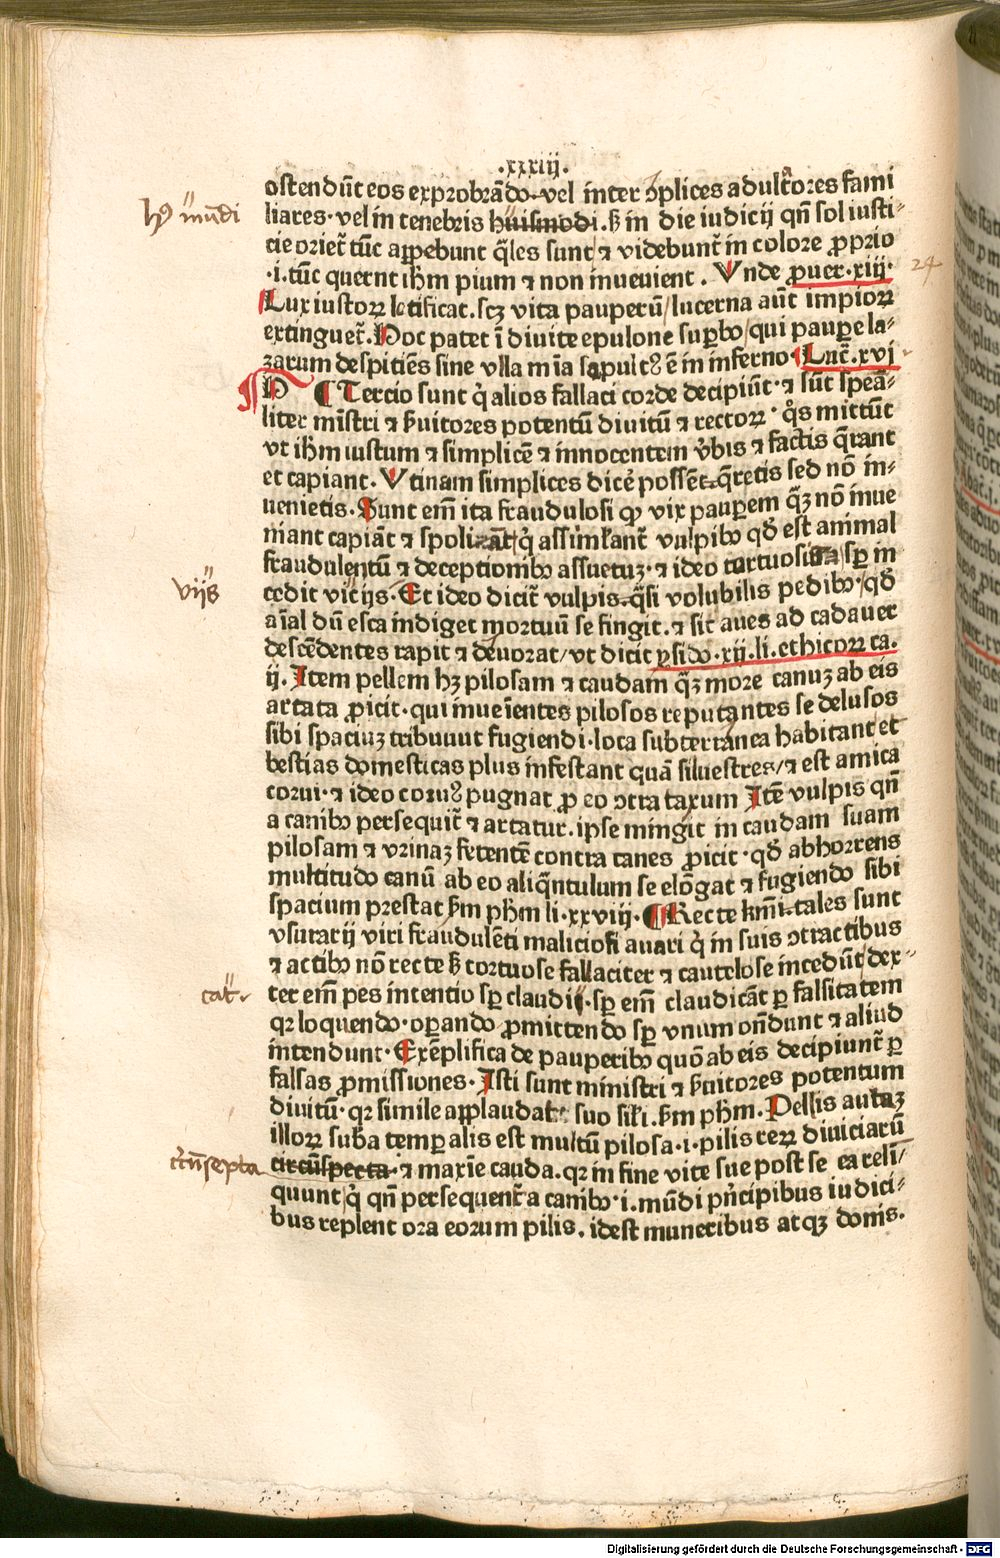 .xxxiij.
ostendūt eos exprobrādo. vel inter ↄplices adult̄ores fami
hꝰ mūdi
liares. vel in tenebris huismodi. ẜ in die iudicij qn̄ sol iusti⸗
cie oriet̄ tūc apꝑebunt q̄les sunt / ⁊ videbunt̄ in colore ꝓprio
.i. tūc querēt ihm̄ pium ⁊ non inuenient. Vnde ꝓuer. xiij.
24
Lux iustoꝝ letificat. scꝫ vita pauperū / lucerna aūt impioꝝ
extinguet̄. Hoc patet ī diuite epulone suꝑbo / qui pauꝑe la⸗
zarum despitiēs sine vlla mīa sepultꝰ ē in inferno Luc̄. xvj
¶ Tercio sunt q̇ alios fallaci corde decipiūt. ⁊ sūt speā⸗
liter mīstri ⁊ ẜuitores potentū diuitū ⁊ rectoꝝ. q̇s mittūt
vt ihm̄ iustum ⁊ simplicē ⁊ innocentem v̇bis ⁊ factis q̄rant
et capiant. Vtinam simplices dicē possēt. q̄retis sed nō in⸗
uenietis. Sunt em̄ ita fraudulosi ꝙ vix pauꝑem q̄ꝫ nō inue
niant capiāt ⁊ spoliāt / q̇ assimilant̄ vulpibꝰ qđ est animal
fraudulentū ⁊ deceptionibꝰ assuetuꝫ. ⁊ ideo tortuosis sꝑ in
viijs
cedit vicijs. Et ideo dicit̄ vulpis. q̄si volubilis pedibꝰ / qđ
aīal dū esca indiget mortuū se fingit. ⁊ sic aues ad cadauer
descēdentes rapit ⁊ deuorat / vt dicit ysido. xij. li. ethicoꝝ ca.
ij. Item pellem hꝫ pilosam ⁊ caudam q̄ꝫ more canuꝫ ab eis
artata ꝓicit. qui inueīentes pilosos reputantes se delusos
sibi spaciuꝫ tribuunt fugiendi. loca subterranea habitant et
bestias domesticas plus infestant quā siluestres / ⁊ est amica
corui. ⁊ ideo coruꝰ pugnat ꝓ eo ↄtra taxum Itē vulpis qn̄
a canibꝰ persequit̄ ⁊ artatur. ipse mingit in caudam suam
pilosam ⁊ vrinaꝫ fetentē contra canes ꝓicit. qđ abhorrens
multitudo canū ab eo aliq̄ntulum se elōgat ⁊ fugiendo sibi
spacium prestat ẜm phm̄ li. xxviij. ¶ Recte km̄i tales sunt
vsurarij viri fraudulēti maliciosi auari q̇ in suis ↄtractibus
⁊ actibꝰ nō recte ẜ tortuose fallaciter ⁊ cautelose incedūt / dex⸗
cat̄
ter em̄ pes intentio sꝑ claudi. sꝑ em̄ claudicāt ꝑ falsitatem
qꝛ loquendo. oꝑando ꝓmittendo sꝑ vnum on̄dunt ⁊ aliud
intendunt. Exēplifica de pauperibꝰ quō ab eis decipiunt̄ ꝑ
falsas ꝓmissiones. Isti sunt ministri ⁊ ẜuitores potentum
diuitū. qꝛ simile applaudat suo sil̄i. ẜm phm̄. Pellis autaꝫ
illoꝝ suba temꝑalis est multū pilosa. i. pilis reꝝ diuiciarū
c̄rcūsepta
circūspecta. ⁊ maxīe cauda. qꝛ in fine vite sue post se ea reli̅⸗
quunt q̇ qn̄ persequent̄ a canibꝰ. i. mūdi pn̄cipibus iudici⸗
bus replent ora eorum pilis. idest muneribus atqꝫ donis.
Digitalisierung gefördert durch die Deutsche Forschungsgemeinschaft - DFG